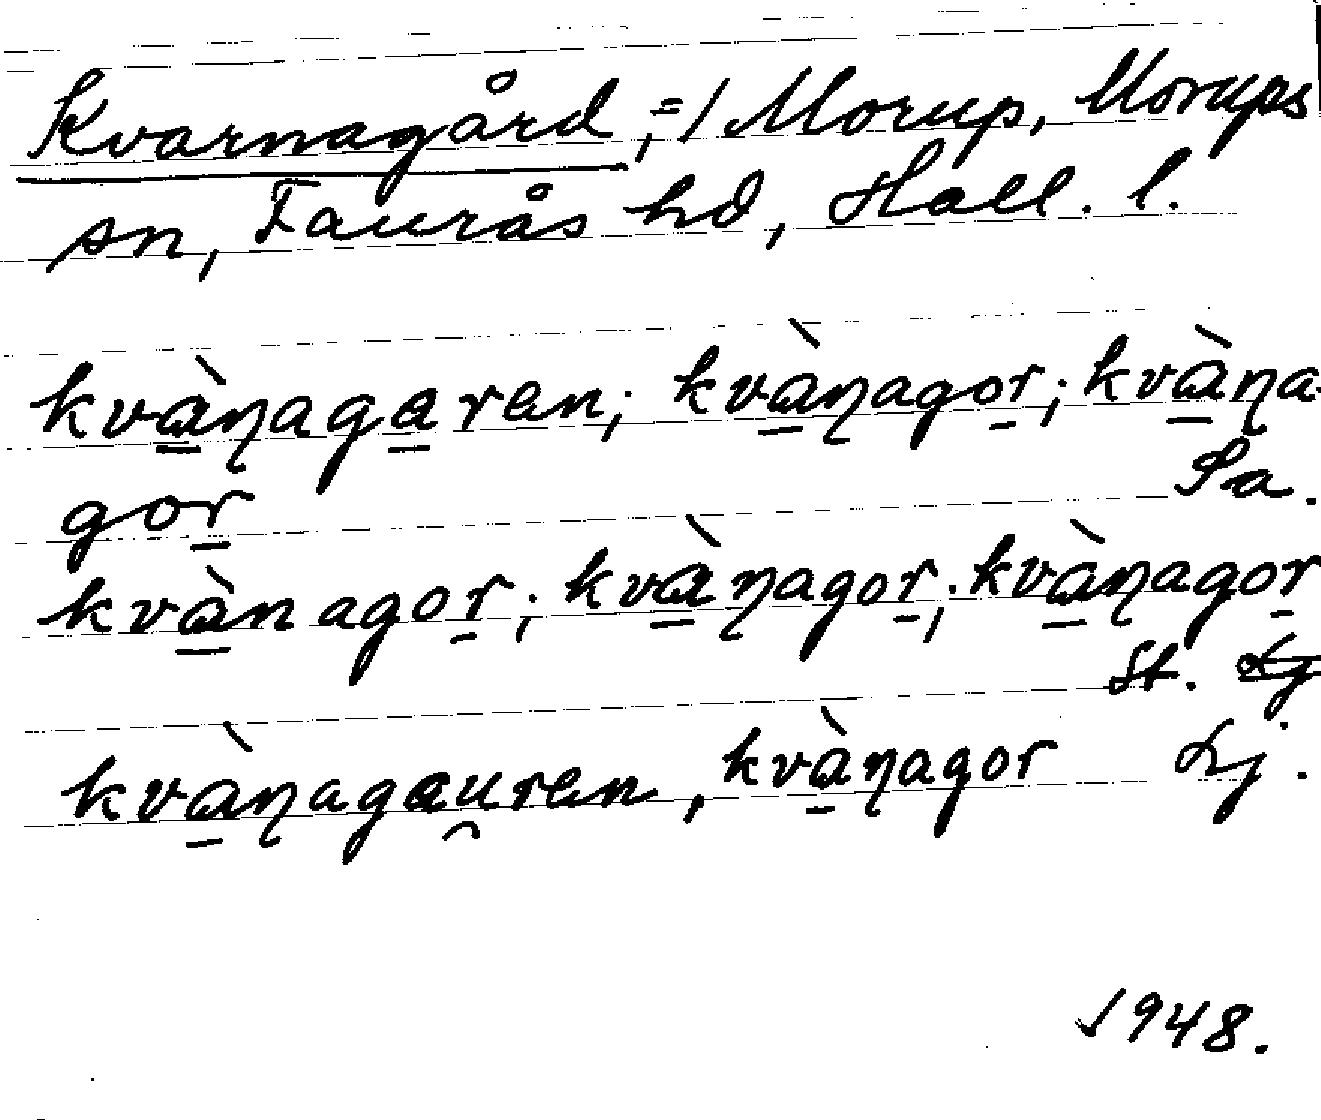 Kvarnagård, =/ Morup, Morups
sn, Faurås hd, Hall. l.
kvà̱ŋaga̱ren; kvà̱ŋagor̠; kvà̱ŋa-
gor̠ Sa.
kvà̱nagor̠; kvà̱ŋagor̠; kvà̱ŋagor̠
St.
kvà̱ŋagau̯ren, kvà̱ŋagor Lj.
1948.